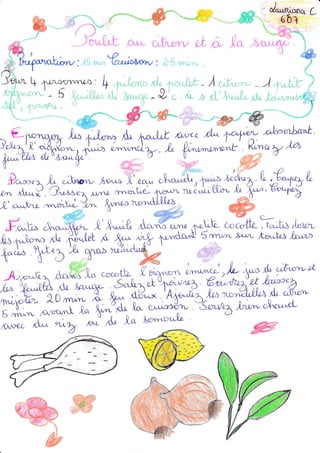 Lauriana C
6B7
Poulet au citron et à la sauge.
Préparation : 15 min Cuisson : 25 min.
Pour 4 personnes : 4 pilons de poulet - 1 citron - 1 petit
oignon - 5 feuilles de sauge - 2 c. à s d'huile de tournesol
sel, poivre.
Épongez les pilons de poulet avec du papier absorbant.
Pelez l'oignon, puis émincez-le finement. Rincez les
feuilles de sauge.
Passez le citron sous l'eau chaude, puis séchez-le. Coupez-le
en deux. Pressez une moitié pour recueillir le jus. Coupez
l'autre moitié en fines rondelles.
Faites chauffer l'huile dans une petite cocotte. Faites dorer
les pilons de poulet à feu vif pendant 5 min sur toutes leurs
faces. Jetez le gras résiduel.
Ajoutez dans la cocotte l'oignon émincé, le jus de citron et
les feuilles de sauge. Salez et poivrez. Couvrez et laissez
mijoter 20 min à feu doux. Ajoutez les rondelles de citron
5 min avant la fin de la cuisson. Servez bien chaud
avec du riz ou de la semoule.